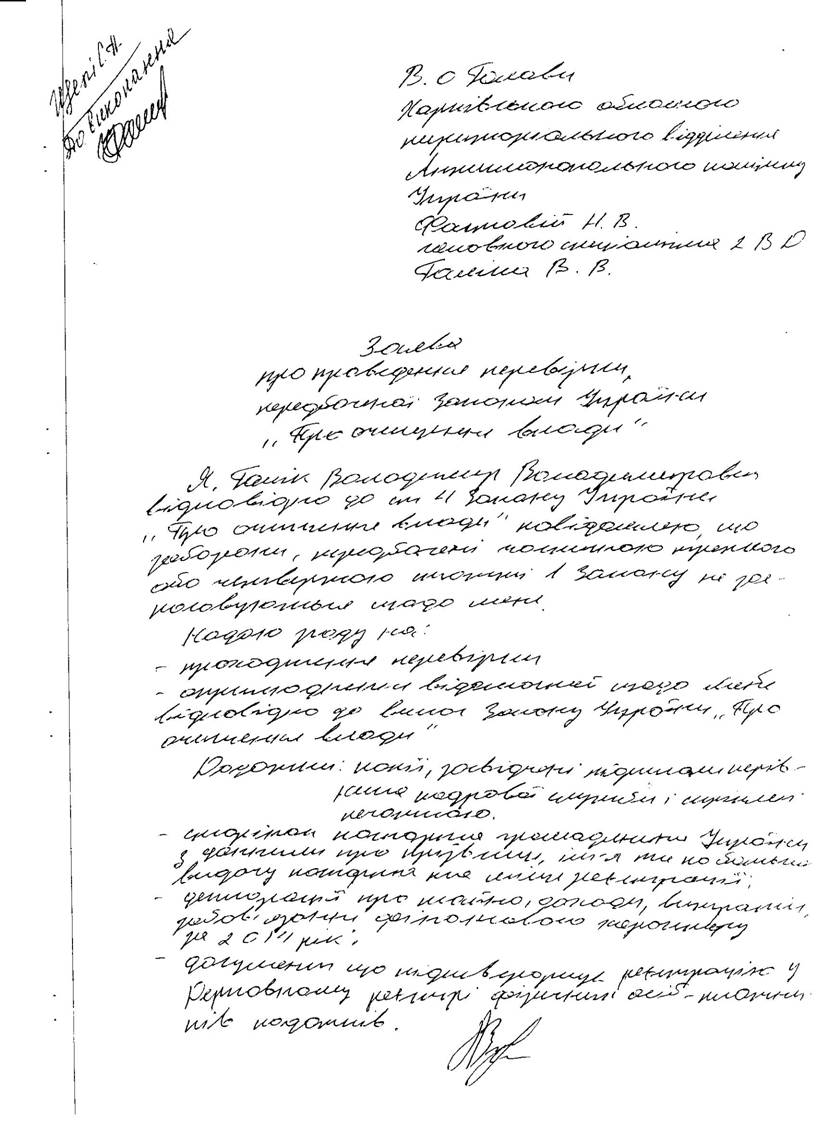 До виконання
В. О Голови
Харківського обласного
територіального відділення
Антимонопольного комітету
України
Н. В.
головного спеціаліста 2 В Д
В. В.
Заява
про проведення перевірки,
передбаченої Законом України
„Про очищення влади"
Я, Володимир Володимирович
відповідно до ст 4 Закону України
„Про очищення влади" повідомляю, що
заборони, передбачені частиною третьою
або четвертою статті 1 Закону не зас-
тосовуються щодо мене.
Надаю згоду на:
- проходження перевірки
- оприлюднення відомостей щодо мене
відповідно до вимог Закону України „Про
очищення влади"
Додатки: копії, засвідчені підписом керів-
ника кадрової служби і скріплені
печаткою.
- сторінок паспорта громадянина України
з даними про прізвище, ім'я та по батькові
видачу паспорта та місце реєстрації;
- декларації про майно, доходи, витрати,
зобов'язання фінансового характеру
за 2014 рік;
- документи що підтверджує реєстрацію у
Державному реєстрі фізичних осіб-платни-
ків податків.